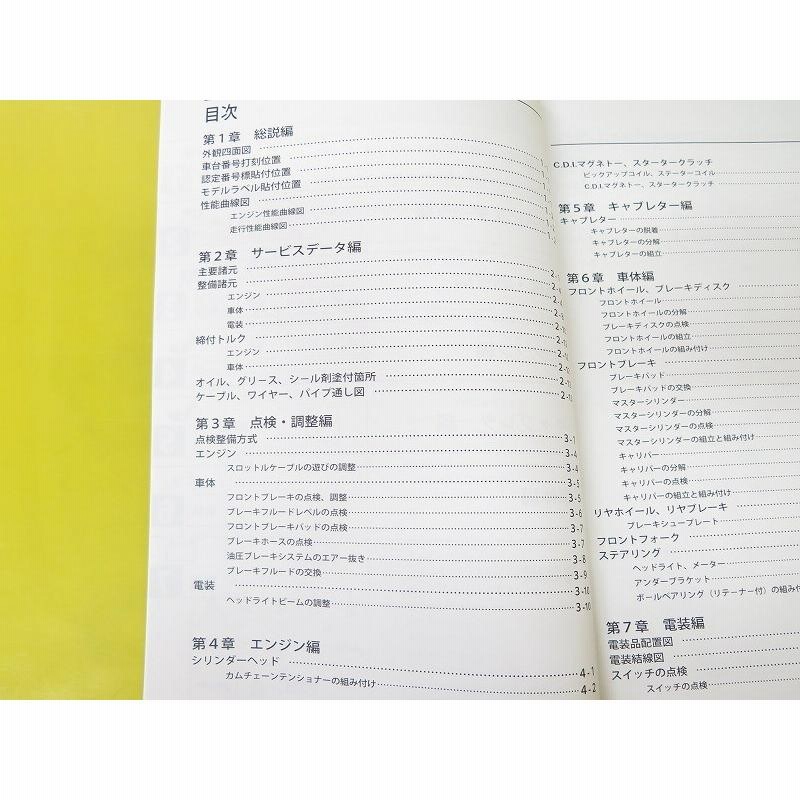 目次
第1章 総説編
外観四面図
車台番号打刻位置
認定番号標貼付位置
モデルラベル貼付位置
性能曲線図
エンジン性能曲線図
走行性能曲線図
第2章 サービスデータ編
主要諸元
整備諸元
エンジン
車体
電装
締付トルク
エンジン
車体
オイル、グリース、シール剤塗付箇所
ケーブル、ワイヤー、パイプ通し図
第3章 点検・調整編
点検整備方式 3-1
エンジン 3-4
スロットルケーブルの遊びの調整 3-4
車体 3-5
フロントブレーキの点検、調整 3-5
ブレーキフルードレベルの点検 3-6
フロントブレーキパッドの点検 3-7
ブレーキホースの点検 3-7
油圧ブレーキシステムのエアー抜き 3-8
ブレーキフルードの交換 3-9
電装 3-10
ヘッドライトビームの調整 3-10
第4章 エンジン編
シリンダーヘッド 4-1
カムチェーンテンショナーの組み付け 4-2
C.D.I.マグネトー、スタータークラッチ
ピックアップコイル、ステーターコイル
C.D.I.マグネトー、スタータークラッチ
第5章 キャブレター編
キャブレター
キャブレターの脱着
キャブレターの分解
キャブレターの組立
第6章 車体編
フロントホイール、ブレーキディスク
フロントホイール
フロントホイールの分解
ブレーキディスクの点検
フロントホイールの組立
フロントホイールの組み付け
フロントブレーキ
ブレーキパッド
ブレーキパッドの交換
マスターシリンダー
マスターシリンダーの分解
マスターシリンダーの点検
マスターシリンダーの組立と組み付け
キャリパー
キャリパーの分解
キャリパーの点検
キャリパーの組立と組み付け
リヤホイール、リヤブレーキ
ブレーキシュープレート
フロントフォーク
ステアリング
ヘッドライト、メーター
アンダーブラケット
ボールベアリング（リテーナー付）の組み付
第7章 電装編
電装品配置図
電装結線図
スイッチの点検
スイッチの点検